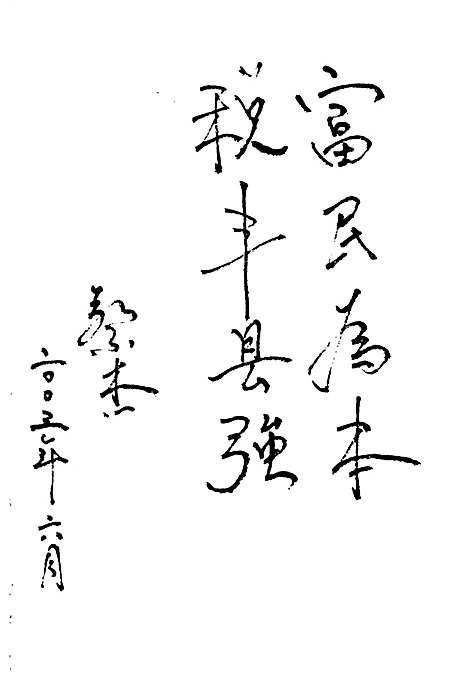 富民為本
税丰县強
黎杰
二〇〇五年六月